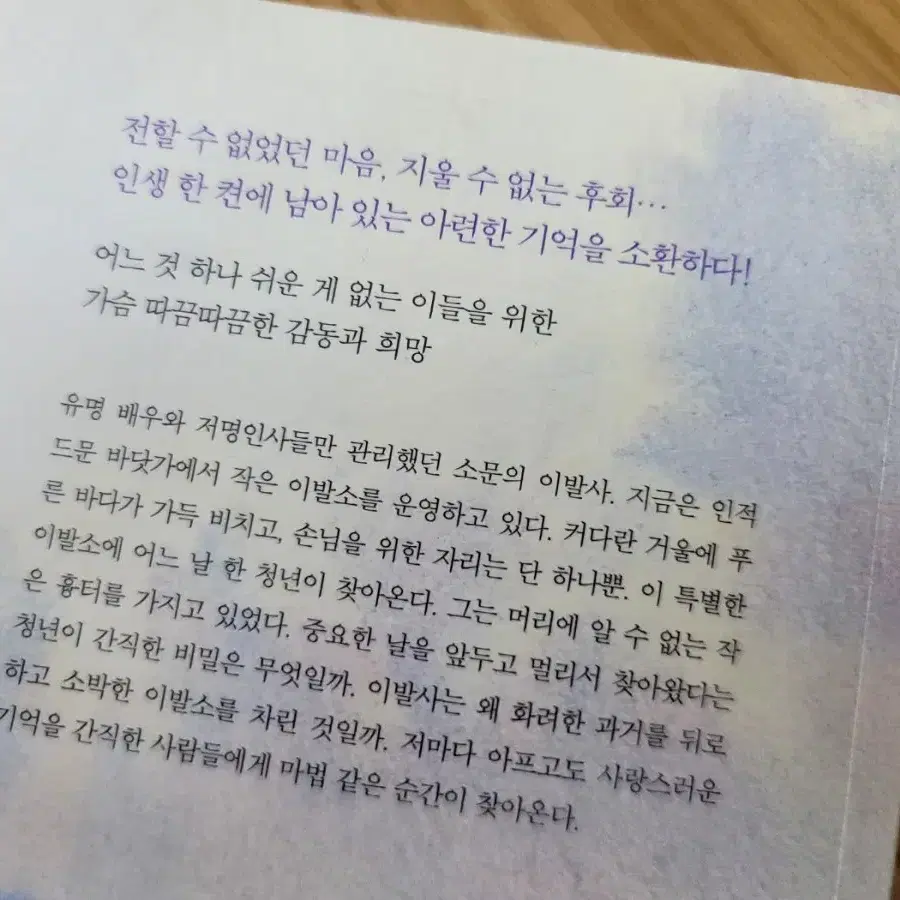 전할 수 없었던 마음, 지울 수 없는 후회…
인생 한 켠에 남아 있는 아련한 기억을 소환하다!
어느 것 하나 쉬운 게 없는 이들을 위한
가슴 따끔따끔한 감동과 희망
유명 배우와 저명인사들만 관리했던 소문의 이발사. 지금은 인적
드문 바닷가에서 작은 이발소를 운영하고 있다. 커다란 거울에 푸
른 바다가 가득 비치고, 손님을 위한 자리는 단 하나뿐. 이 특별한
이발소에 어느 날 한 청년이 찾아온다. 그는 머리에 알 수 없는 작
은 흉터를 가지고 있었다. 중요한 날을 앞두고 멀리서 찾아왔다는
청년이 간직한 비밀은 무엇일까. 이발사는 왜 화려한 과거를 뒤로
하고 소박한 이발소를 차린 것일까. 저마다 아프고도 사랑스러운
기억을 간직한 사람들에게 마법 같은 순간이 찾아온다.